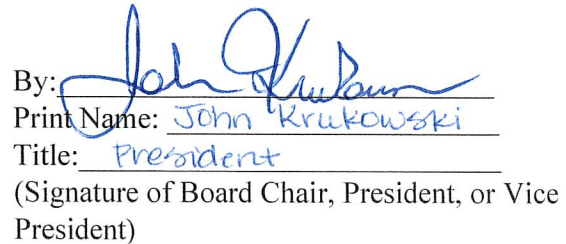 By: John Krukowski
Print Name: John Krukowski
Title: President
(Signature of Board Chair, President, or Vice
President)